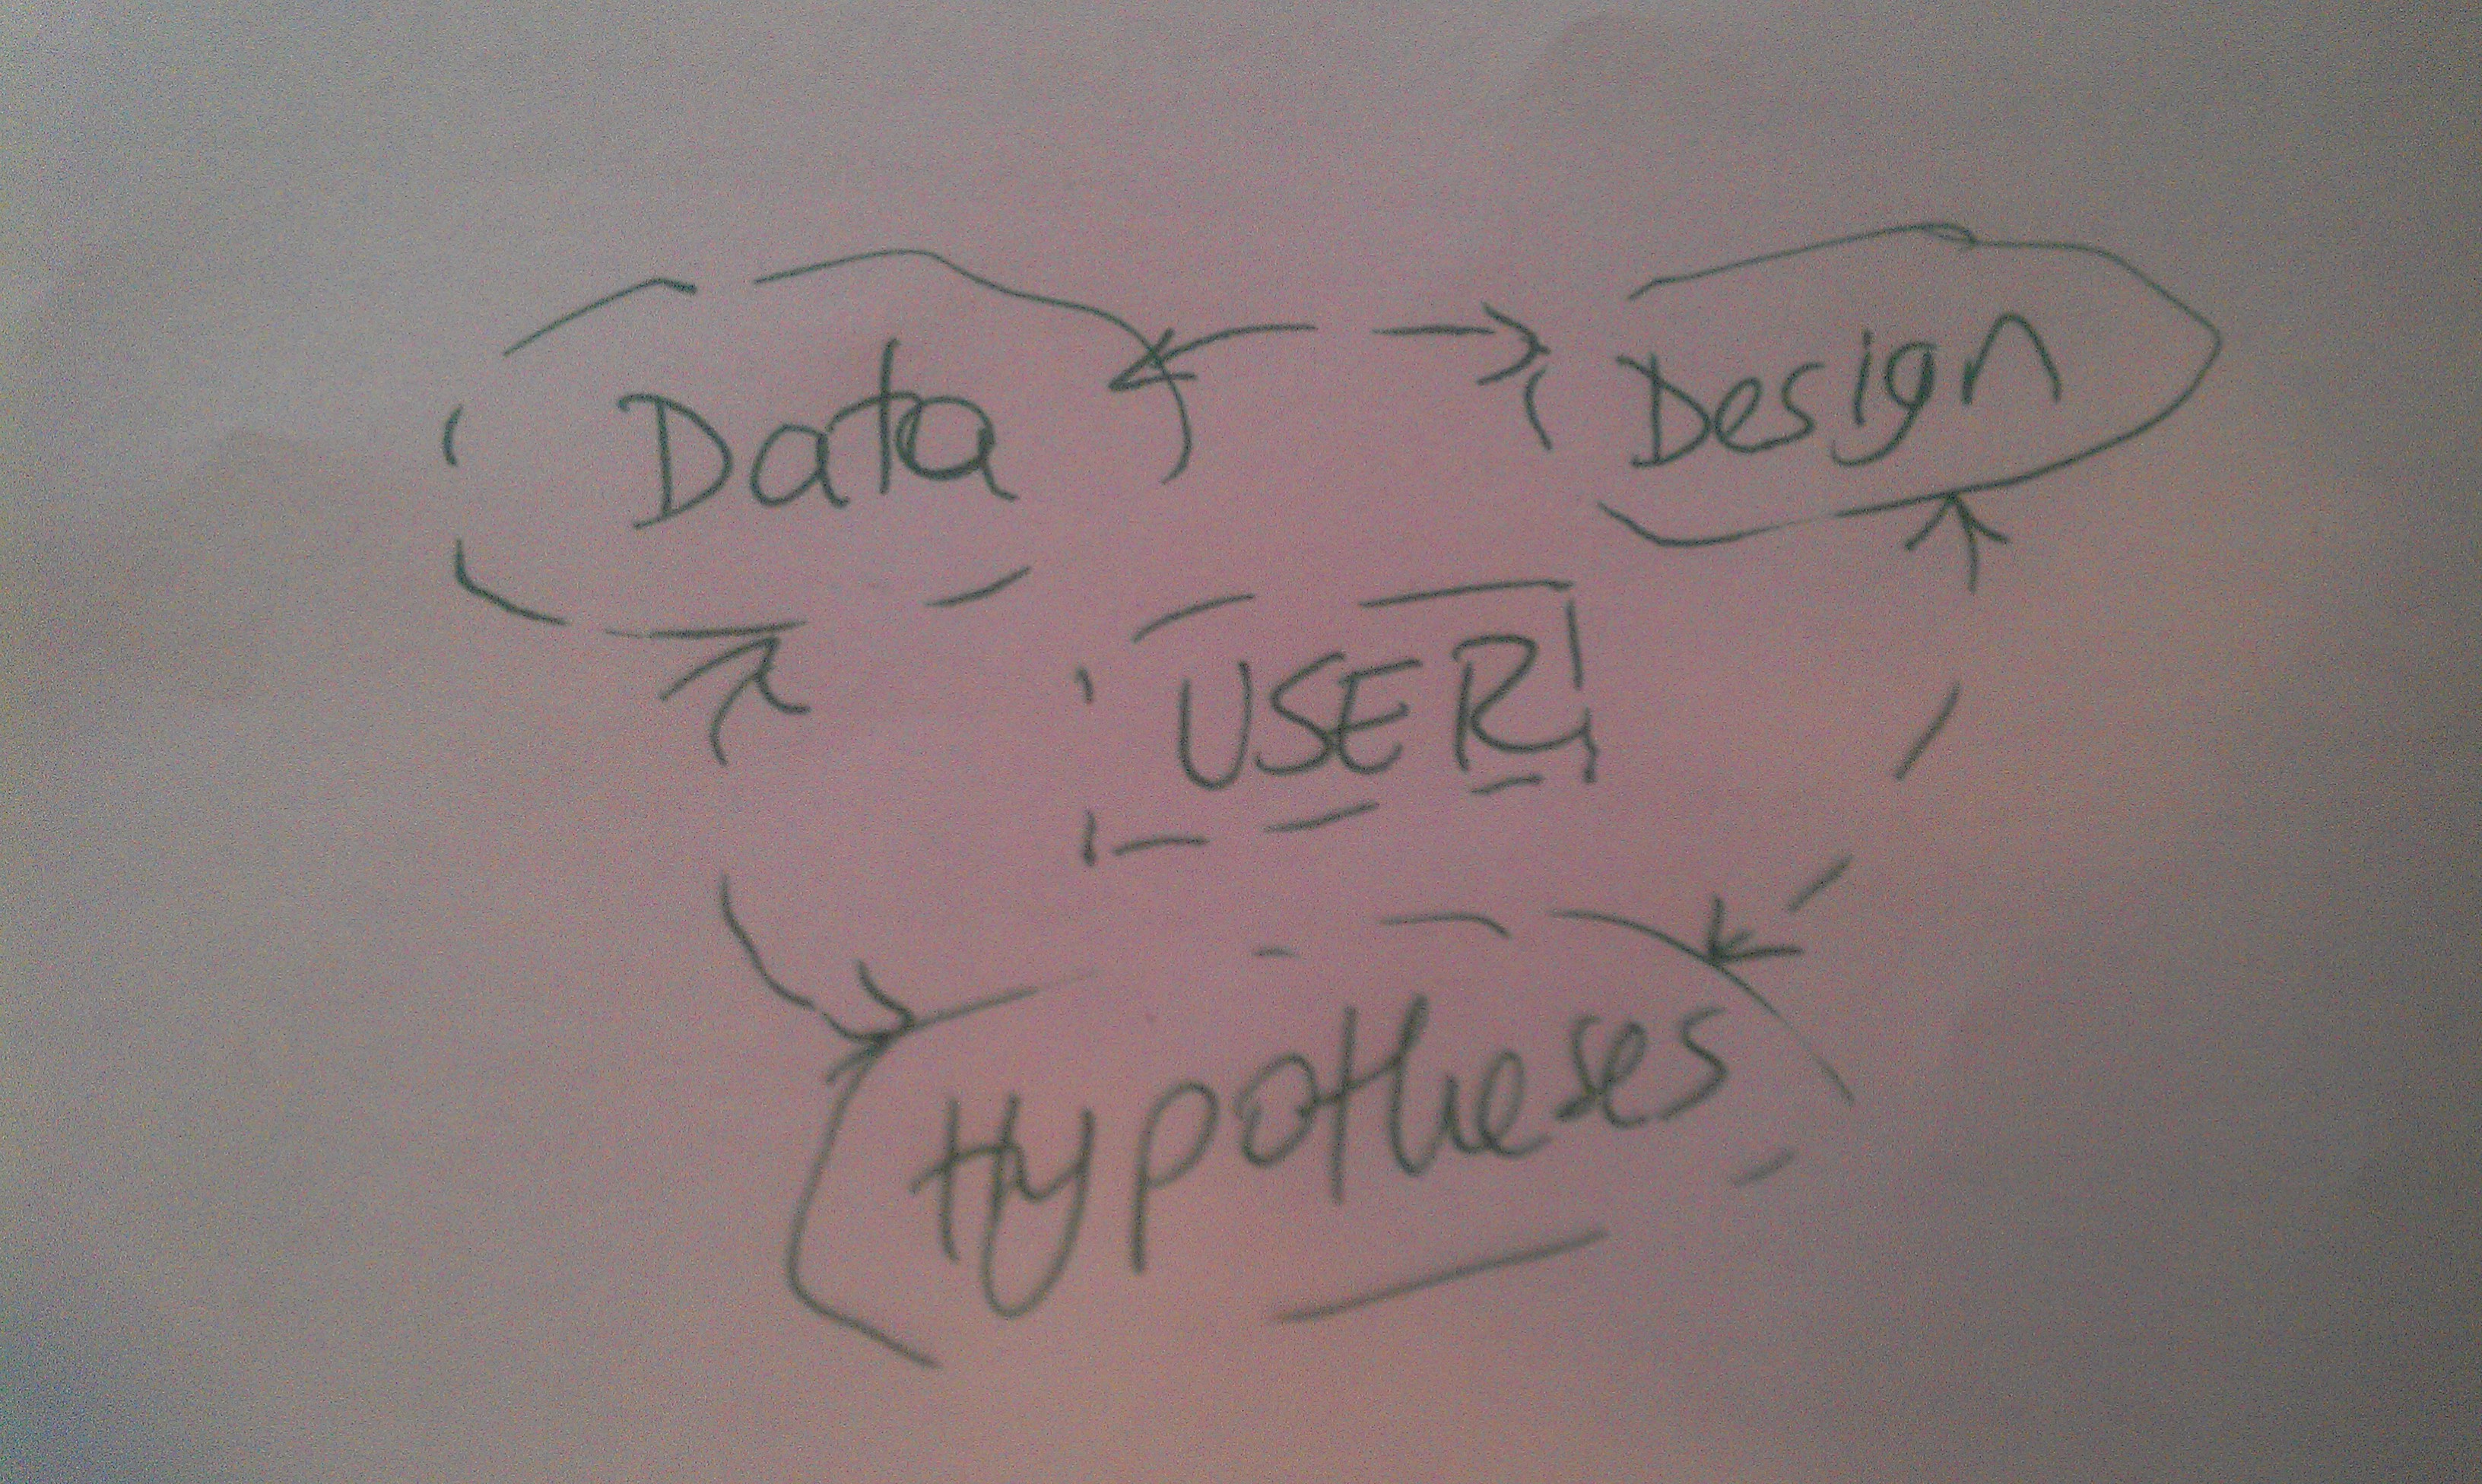 Data
Design
USER
Hypotheses